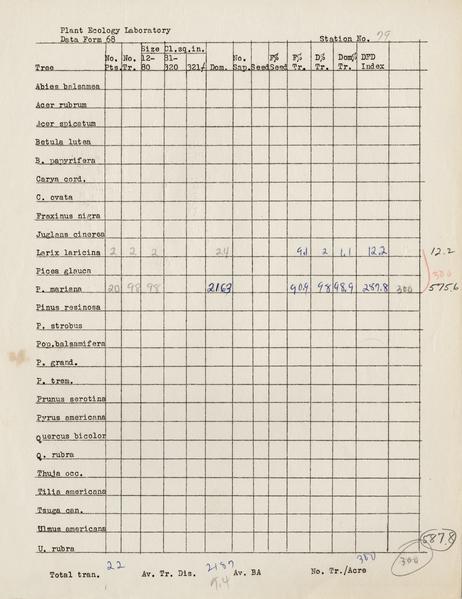 Plant Ecology Laboratory
Data Form 68 Station No. 79
Size Cl.sq.in.
No. No. 12- 81- No. F% F% D% Dom% DFD
Tree Pts. Tr. 80 320 321/ Dom. Sap. Seed Seed Tr. Tr. Tr. Index
Abies balsamea
Acer rubrum
Acer spicatum
Betula lutea
B. papyrifera
Carya cord.
C. ovata
Fraxinus nigra
Juglans cinerea
Larix laricina 2 2 2 24 9.1 2 1.1 12.2 12.2
Picea glauca 300
P. mariana 20 98 98 2163 90.9 98 98.9 287.8 300 575.6
Pinus resinosa
P. strobus
Pop.balsamifera
P. grand.
P. trem.
Prunus serotina
Pyrus americana
Quercus bicolor
Q. rubra
Thuja occ.
Tilia americana
Tsuga can.
Ulmus americana
U. rubra 587.8
300
Total tran. 22 Av. Tr. Dis. 2187 Av. BA No. Tr./Acre 300
9.4